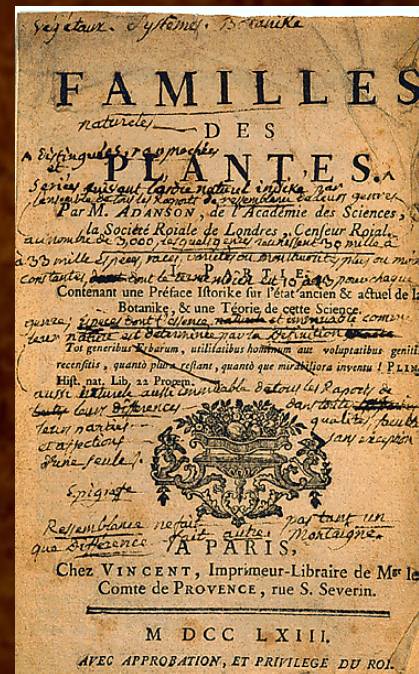 Vegetaux. Systemes. Botanike
FAMILLES
naturelles
DES
distinguées, raprochées
PLANTES.
Series suivant l'ordre naturel indiké par
l'ensemble de tous les Raports de ressemblance de leurs genres
Par M. ADANSON, de l'Académie des Sciences,
la Société Roiale de Londres, Censeur Roial.
au nombre de 3,000, lesquels genres réunissent 30 mille à
33 mille Especes, races, variétés ou monstruosités, plus ou moins
PARTIE.
constantes, dont le terme
Contenant une Préface Istorike sur l'état ancien & actuel de la
Botanike, & une Téorie de cette Science.
genre; especes dont l'essence
leur nature est déterminée par la Définition
Tot generibus Erbarum, utilitatibus hominum aut voluptatibus genitis
recensitis, quantò plura restant, quantò que mirabiliora inventu ! PLIN.
Hist. nat. Lib, 22 Proœm.
aussi naturele aussi immuable de tous les Raports de
leurs Differences dans toutes
leurs parties qualités,
et affections sans exception
d'une seule.
Epigrafe
Ressemblance ne fait pas tant un
que Difference fait autre. Montaigne.
A PARIS,
Chez VINCENT, Imprimeur-Libraire de Mgr le
Comte de PROVENCE, rue S. Severin.
M DCC LXIII.
AVEC APPROBATION, ET PRIVILEGE DU ROI.